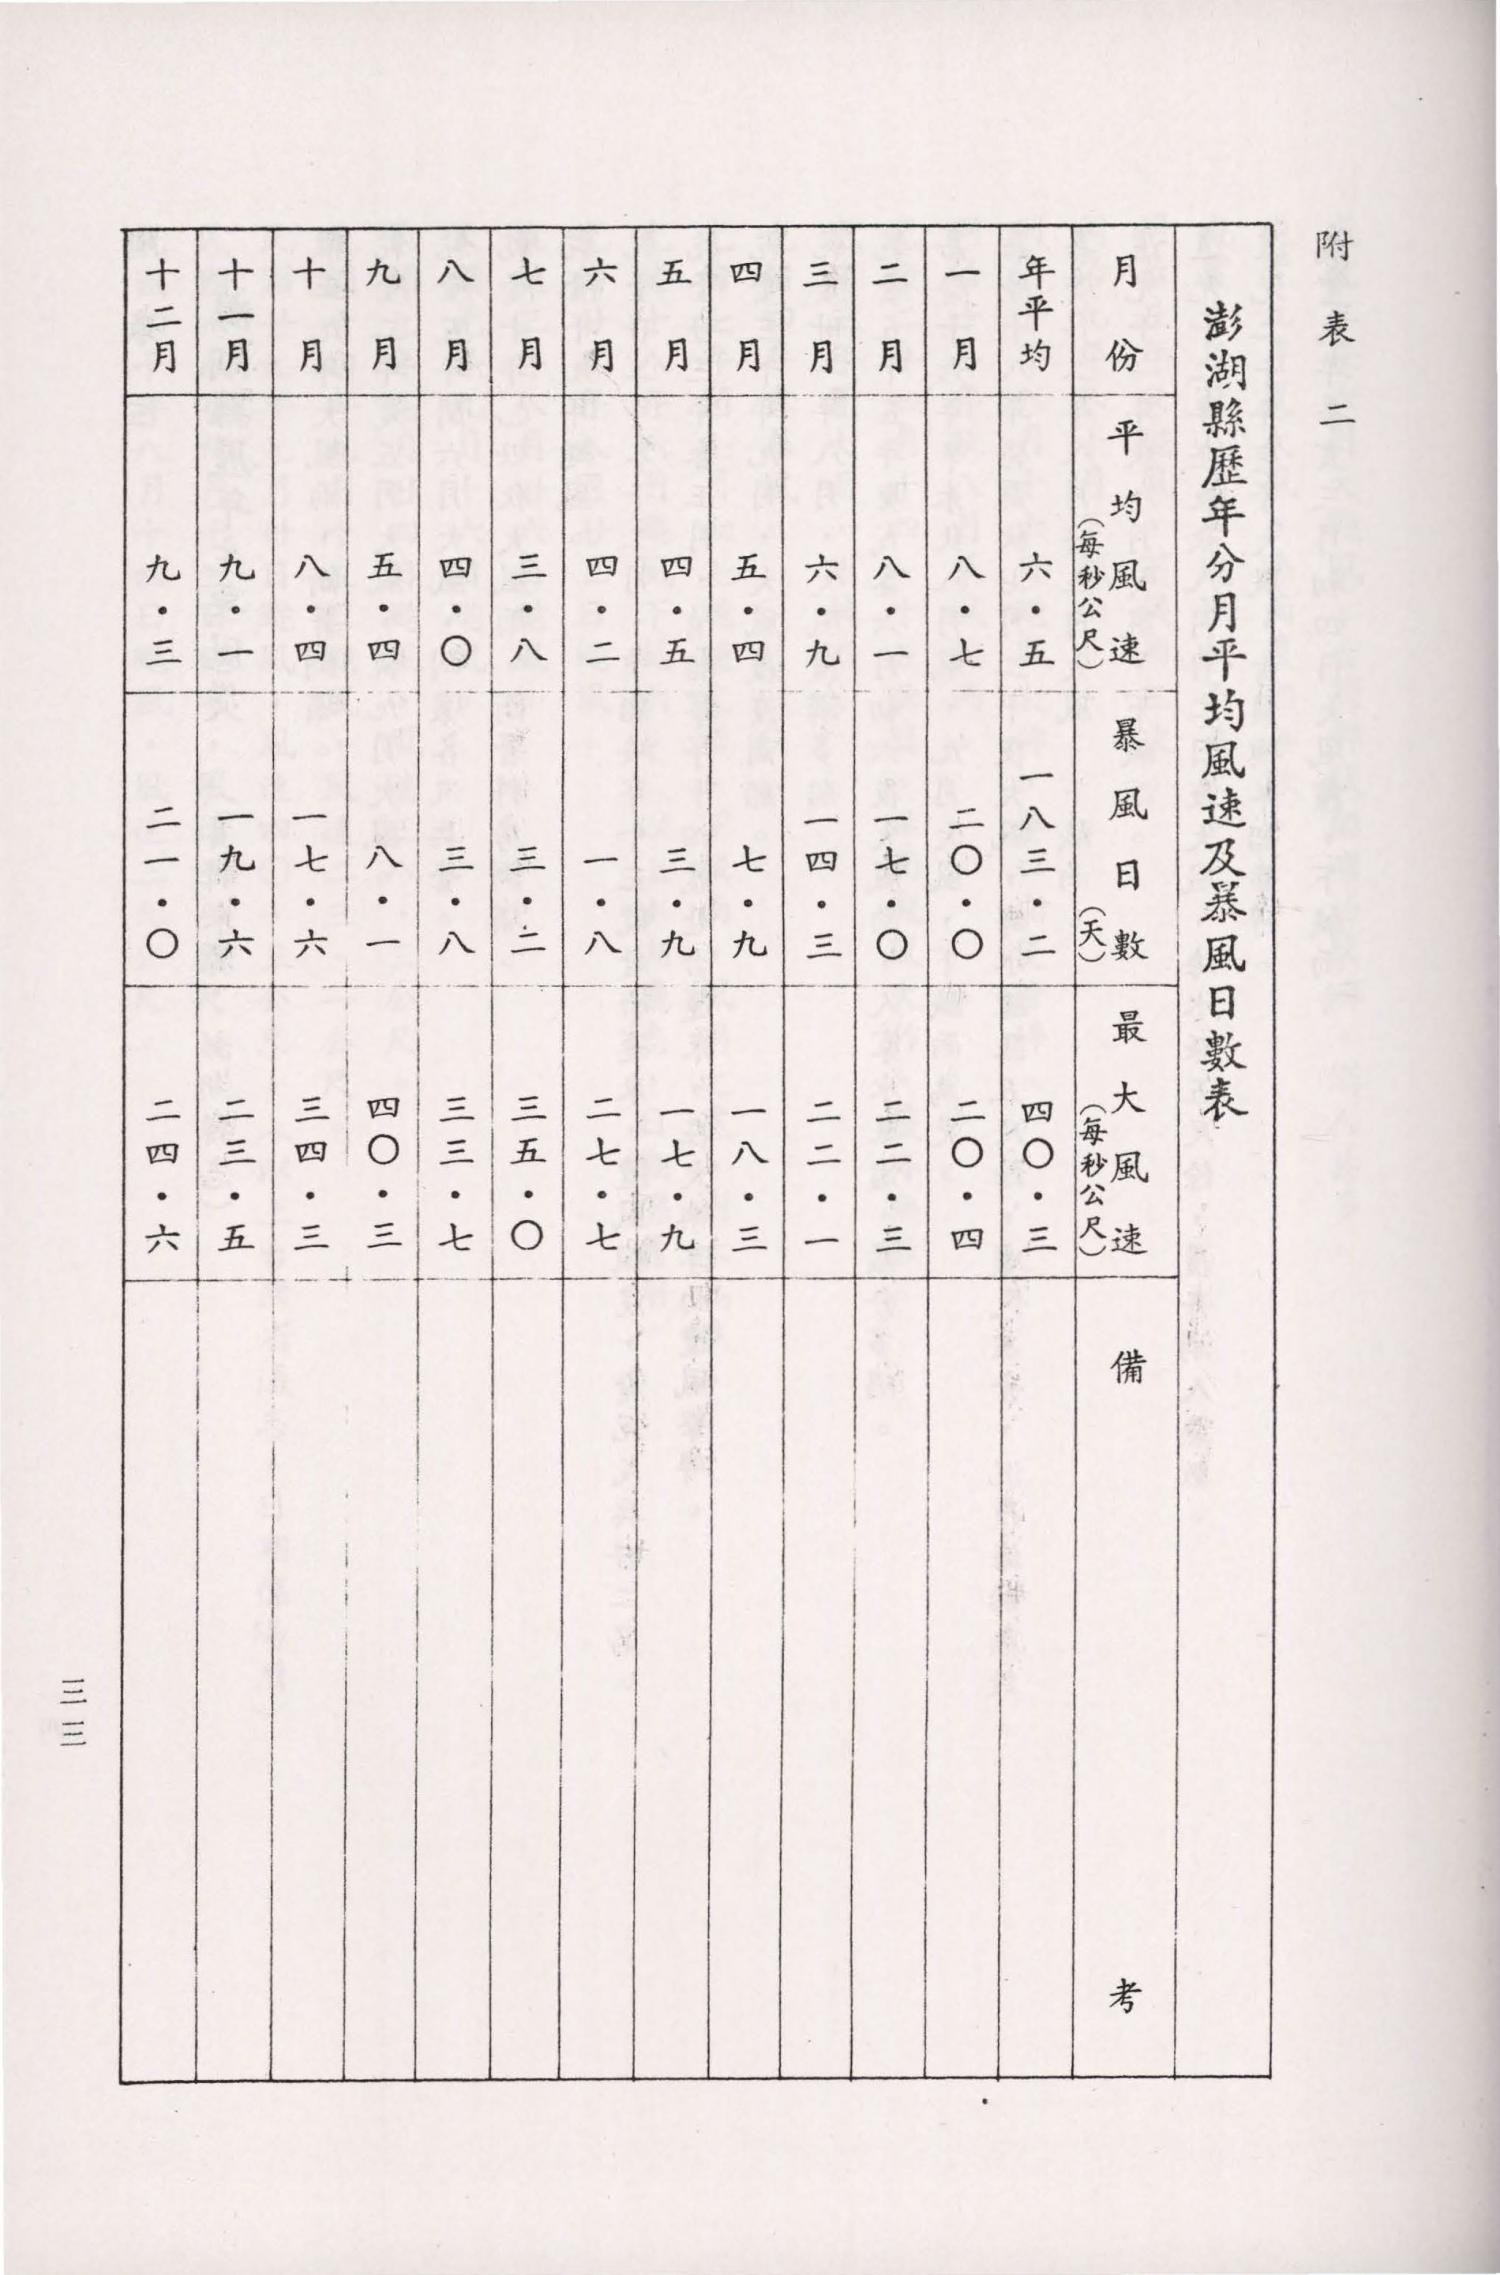 附表二
澎湖縣歷年分月平均風速及暴風日數表
月份 平均風速(每秒公尺) 暴風日數(天) 最大風速(每秒公尺) 備考
年平均 六・五 一八三・二 四〇・三
一月 八・七 二〇・〇 二〇・四
二月 八・一 一七・〇 二二・三
三月 六・九 一四・三 二二・一
四月 五・四 七・九 一八・三
五月 四・五 三・九 一七・九
六月 四・二 一・八 二七・七
七月 三・八 三・二 三五・〇
八月 四・〇 三・八 三三・七
九月 五・四 八・一 四〇・三
十月 八・四 一七・六 三四・三
十一月 九・一 一九・六 二三・五
十二月 九・三 二一・〇 二四・六
三三